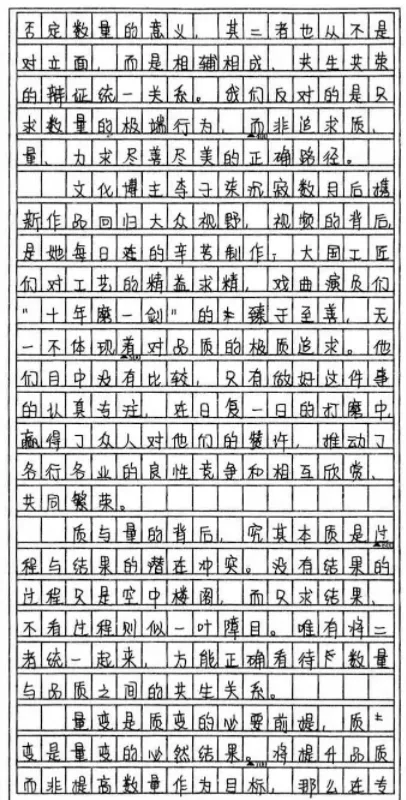 否定数量的意义，其二者也从不是
对立面，而是相辅相成、共生共荣
的辩证统一关系。我们反对的是只
求数量的极端行为，而非追求质、
量、力求尽善尽美的正确路径。
文化博主李子柒沉寂数月后携
新作品回归大众视野，视频的背后
是她每日迭的辛苦制作；大国工匠
们对工艺的精益求精，戏曲演员们
“十年磨一剑”的 臻于至善，无
一不体现着对品质的极质追求。他
们目中没有比较，只有做好这件事
的认真专注，在日复一日的打磨中，
赢得了众人对他们的赞许，推动了
各行各业的良性竞争和相互欣赏、
共同繁荣。
质与量的背后，究其本质是过
程与结果的潜在冲突。没有结果的
过程只是空中楼阁，而只求结果、
不看过程则似一叶障目。唯有将二
者统一起来，方能正确看待 数量
与品质之间的共生关系。
量变是质变的必要前提，质
变是量变的必然结果。将提升品质
而非提高数量作为目标，那么在专